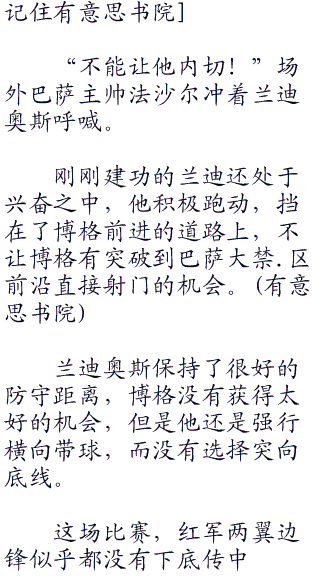 记住有意思书院]
“不能让他内切！”场
外巴萨主帅法沙尔冲着兰迪
奥斯呼喊。
刚刚建功的兰迪还处于
兴奋之中，他积极跑动，挡
在了博格前进的道路上，不
让博格有突破到巴萨大禁.区
前沿直接射门的机会。(有意
思书院)
兰迪奥斯保持了很好的
防守距离，博格没有获得太
好的机会，但是他还是强行
横向带球，而没有选择突向
底线。
这场比赛，红军两翼边
锋似乎都没有下底传中